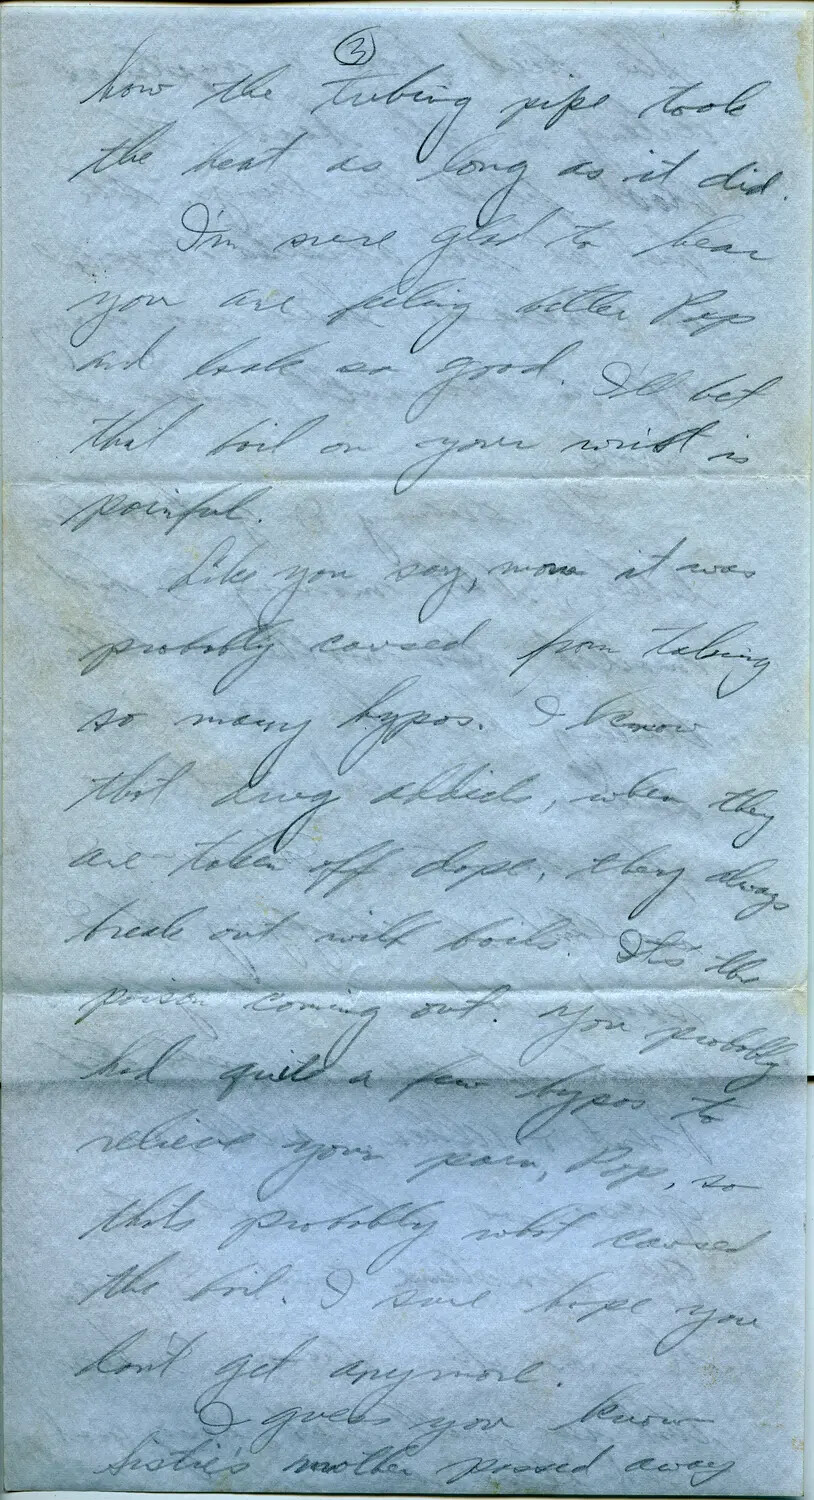 3
how the tubing pipe took
the heat as long as it did.
I'm sure glad to hear
you are feeling better Pop
and look so good. I'll bet
that boil on your wrist is
painful.
Like you say, mom it was
probably caused from taking
so many hypos. I know
that drug addicts, when they
are taken off dope, they always
break out with boils. It's the
poison coming out. You probably
had quite a few hypos to
relieve your pain, Pop, so
thats probably what caused
the boil. I sure hope you
don't get anymore.
I guess you know
Sistie's mother passed away